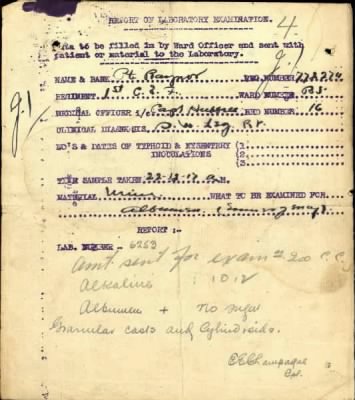 REPORT OF LABORATORY EXAMINATION.
4
Data to be filled in by Ward Officer and sent with
patient or material to the Laboratory.
g.1.
NAME & RANK Pt Raynor REG. NUMBER
REGIMENT 1st C.E.F. WARD NUMBER B5
g.1.
MEDICAL OFFICER i/c Capt BED NUMBER 16
CLINICAL DIAGNOSIS
NO'S & DATES OF TYPHOID & DYSENTERY {1
INOCULATIONS {2
{3
TIME SAMPLE TAKEN 22-12-17
MATERIAL Urine WHAT TO BE EXAMINED FOR
Albumen
REPORT :-
LAB. NUMBER - 6253
Amt sent for exam 200 C.C.
Alkaline 10.12
Albumen + no sugar
Granular casts and Cylindroids.
CEChampagne
Cpt.